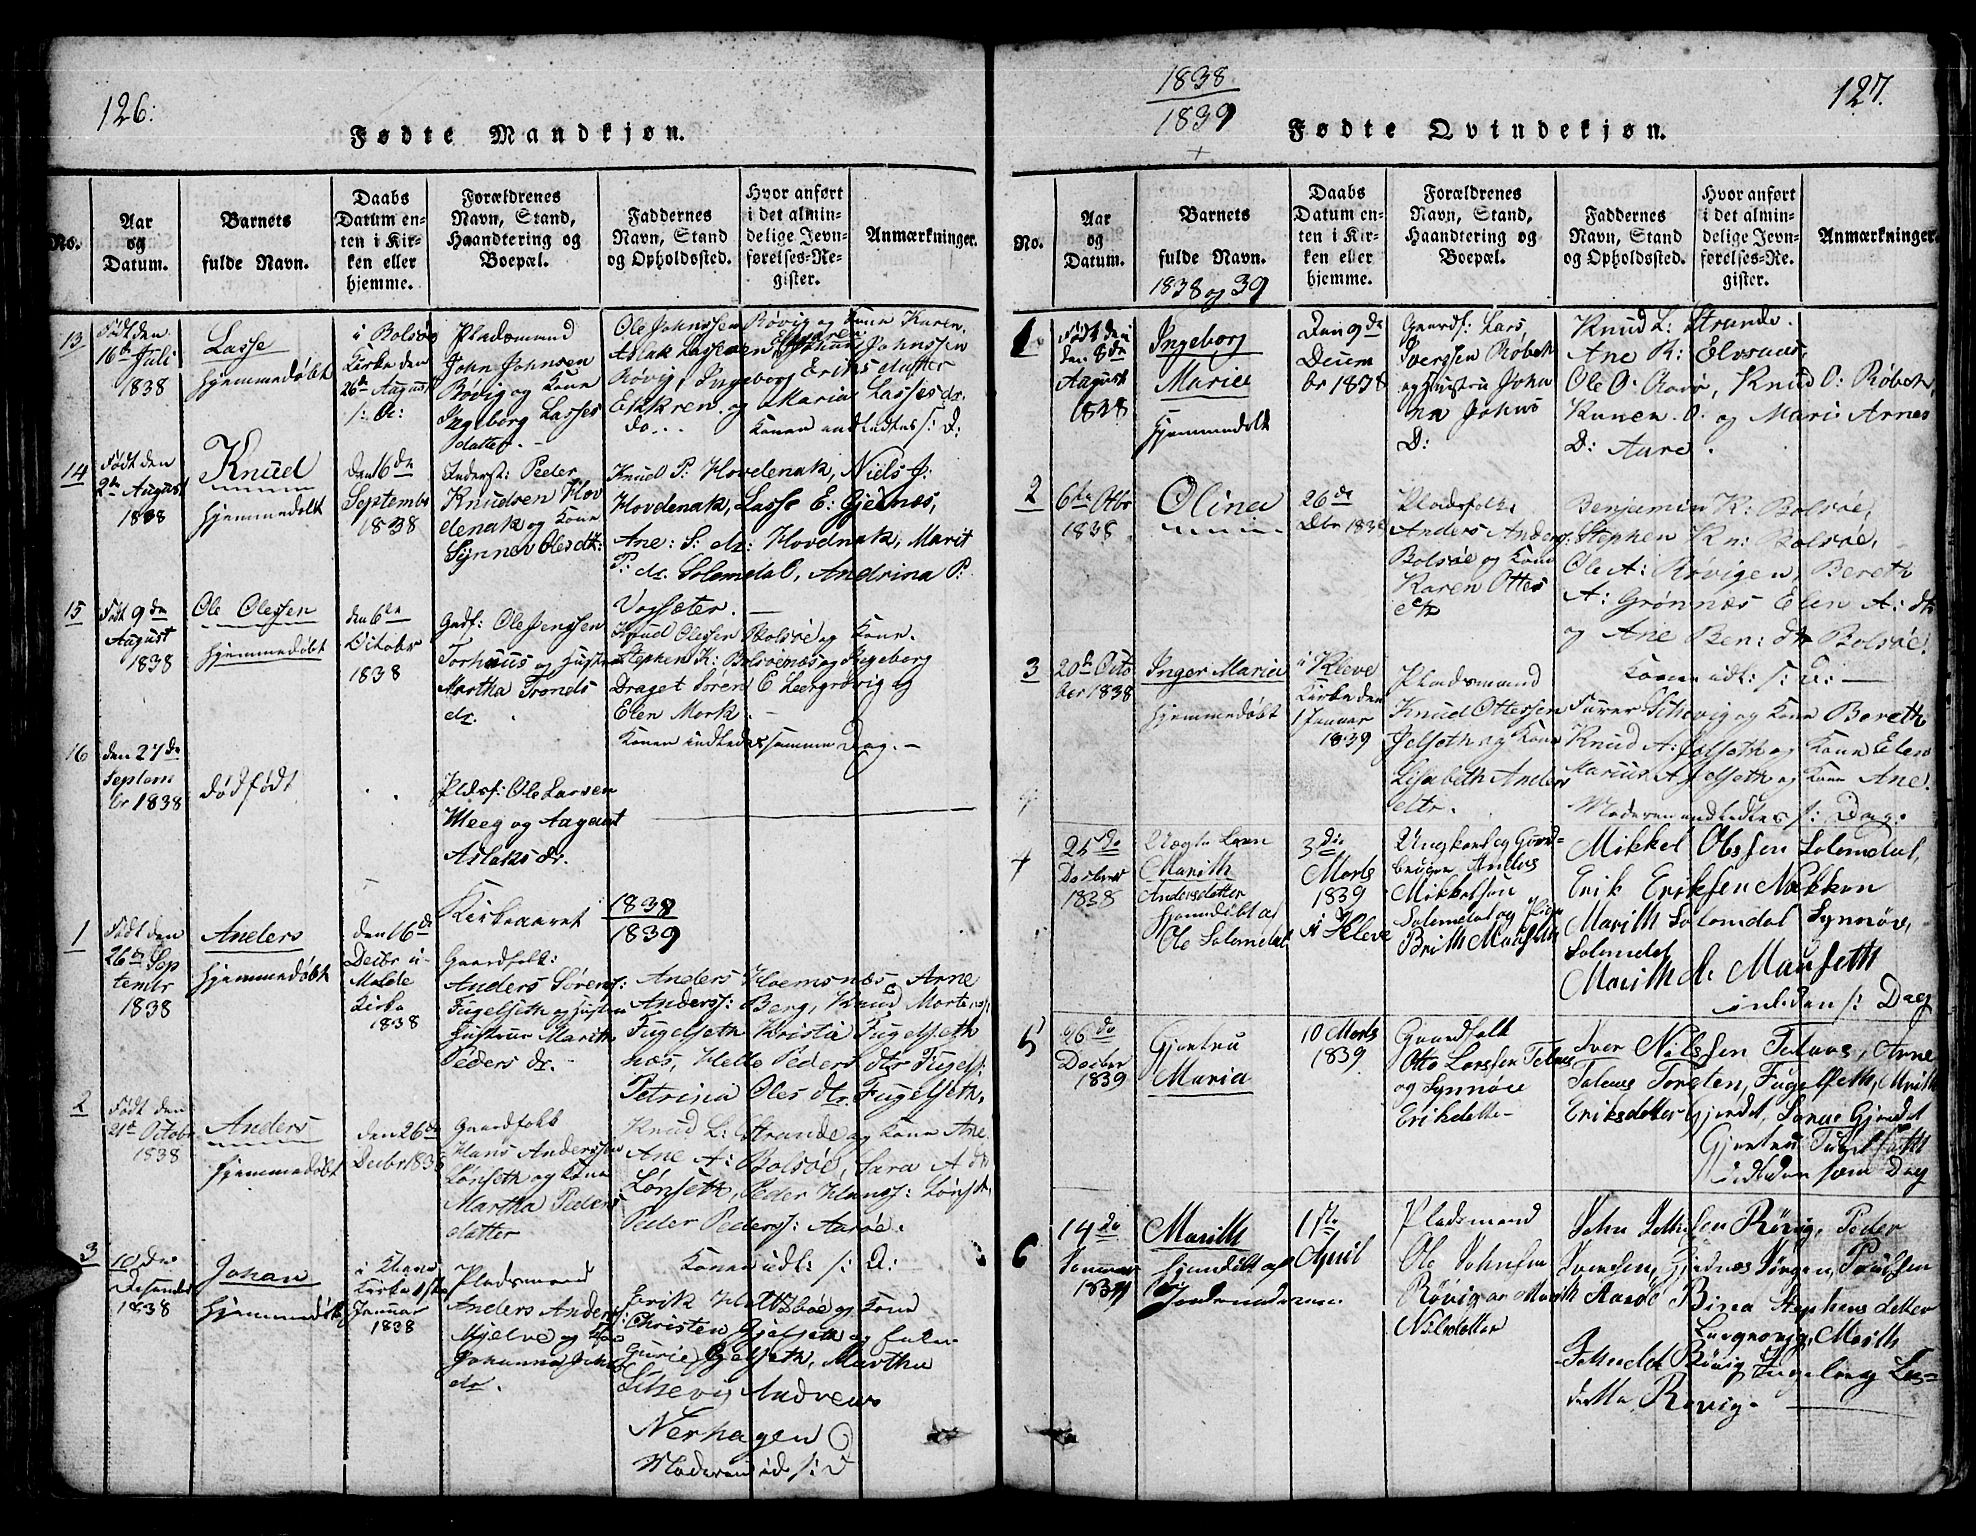 126:
Fødte Mandkjøn.
No.
Aar
og
Datum.
Barnets
fulde Navn.
Daabs
Datum en-
ten i Kir-
ken eller
hjemme.
Forældrenes
Navn, Stand,
Haandtering og
Boepæl.
Faddernes
Navn, Stand
og Opholdssted.
Hvor anført
i det almin-
delige Jevn-
førelses-Re-
gister.
Anmærkninger.
13
Født den
16de Juli
1838
Lasse
hjemmedøbt
i Bolsøe
Kirke den
26de August
s: A:
Pladsmand
John Johnsen
Røvig og Kone
Ingeborg Lasses
datter.
Ole Johnssen Røvig og Kone Karen.
Aslak Lassen Johnssen
Røvig, Ingeborg Eriks datter
Ekkren og Maria Lasses dr.
do... Konen indledtes s: D:
14
Født den
2de August
1838
Knud
hjemmedøbt
den 16de
Septembr
1838
Inderst: Peder
Knudsen Hov
denak og Kone
Synnev Olesdtr:
Knud P: Hovdenak, Niels J:
Hovdenak, Lasse E: Gjednæs,
Ane: S: dr: Hovdnak, Marit
P: dr. Solemdal, Andrina P:
Vogsæter. —
15
Født 9de
August
1838
Ole Olessen
hjemmedøbt
den 6te
Octobr
1838
Gads: Ole Jenssen
Torhuus og Hustru
Martha Tronds
dr.
Knud Olessen Bolsøe og Kone.
Stephen K: Bolsøenæs og Ingeborg
Draget Søren E Leergrovig og
Elen Mork. —
Konen indledes samme Dag. —
16
den 27de
Septem
br 1838
dødfødt
Pladsf: Ole Larsen
Meeg og Aagaat
Aslaks dr.
Kirkeaaret 1838
1839
1
Født den
26de Sep
tembr
1838
Anders
hjemmedøbt
den 16de
Decbr i
Molde
Kirke
1838
Gaardfolk:
Anders Sørens:
Fugelseth og Hustru
Hustrue Marith
Peders dr. —
Anders Hoemsnæs, Arne
Anders: Berg, Knud Mortens:
Fugelseth Kristi Fugelseth
næs, Helle Peders dtr Fugels:
Petrina Oles dtr. Fugelseth.
2
Født den
21de Octobr
1838
Anders
hjemmedøbt
den 26de
Decbr 1838
Gaardfolk
Hans Anderssen
Lønseth og Kone
Martha Peders
datter
Knud L: Strande og Kone Ane.
Ane A: Bolsøe, Sara A dtr
Lønseth, Peder Hanss: Lønsth,
Peder Peders: Aarøe.
Konen indl: s: D:
3
10de
Desember
1838
Johan
hjemmedøbt
i Kleve
Kirke 1ste
Januar
1838
Pladsmand
Anders Anders:
Hjelve og Kone
Johanna Joha
dr.
Erik Hjelsbøe og Kone
Christen Gjelseth og
Gurie Gjelseth, Martha
Skevig Andreas
Nerhagen
Moderen ind s: D
1838
1839
127.
Fødte Qvindekjøn.
No.
Aar
og
Datum.
Barnets
fulde Navn.
1838 og 39
Daabs
Datum en-
ten i Kir-
ken eller
hjemme.
Forældrenes
Navn, Stand,
Haandtering og
Boepæl.
Faddernes
Navn, Stand
og Opholdssted.
Hvor anført
i det almin-
delige Jevn-
førelses-Re-
gister.
Anmærkninger.
1
Født den
den 8de
August
1838
Ingeborg
Mariee
hjemmedøbt
Den 9de
Decem
br 1838
Gaards: Lars
Iverssen Røbek
og Hustru Joha
nn Johns
D:
Knud L: Strande.
Ane R: Elvsaas,
Ole O: Aarø, Knud O: Røbek,
Karen O. og Mari Arnes
D: Aarø.
2
6te Octbr
1838
Olina
26de
Dbr 1838
Pladsfolk:
Anders Anders:
Bolsøe og Kone
Karen Ottes
dtr
Benjamin K: Bolsøe,
Stephen Kn: Bolsøe,
Ole A: Røvigen, Bereth
A: Grønnæs Elen A: dtr
og Ane Ben: dtr Bolsøe.
Konen indl: s: D: —
3
20de Octo
ber 1838
Inger Maria
hjemmedøbt
i Kleve
Kirke den
1 Januar
1839
Pladsmand
Knud Ottessen
Jelseth og Kone
Lisabeth Anders
dtr.
Furer Schevig og Kone Bereth
Knud A: Jelseth og Kone Elen
Marius A Jelseth og Kone Ane.
Moderen indledtes s: Dag:
4
25de
Decbr
1838
Uægte barn
Marith
Andersdatter
hjemdøbt af
Ole Solemdal
3die
Marts
1839
i Kleve
Ungkarl og Gaard-
bruger Anders
Mikkelsen
Solemdal og Pige
Brith Mausseth
Mikkel Olssen Solemdal,
Erik Eriksen Nøkken
Marith Solomdal Synnøv,
Solemdal
Marith dr Mauseth
inleden s: Dag
5
26de
Decber
1839
Gjertru
Maria
10 Marts
1839
Gaardfolk
Otto Larssen Talnes
og Synnøve
Erikdatter
Iver Nilssen Talnæs, Arne
Talnes Torsten, Fugelseth, Marith
Eriksdatter Gjerdet, Sønne Gjerdet
Gjertru Fugelseth
indleden sam Dag
6
14de
Januar
1839
Marith
hjemdøbt af
Jordmoderen
1ste
April
Pladsmand
Ole Johnsen
Røvig og Marith
Nilsdatter
John Johnsen Røvig, Peder
Iversen, Gjednæs Jørgen, Paulsen
Aarøe Birea Stephens datter
Leergrovig, Marith
Johnsdat Røvig Ingeborg Las-
datter Røvig.